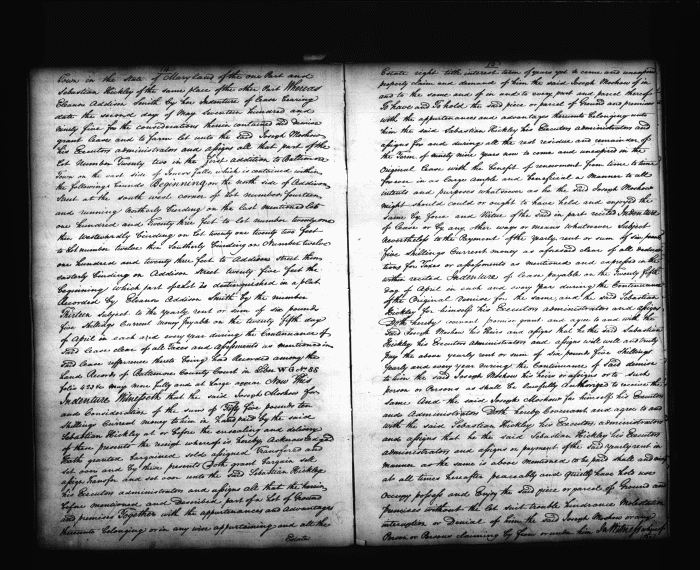 Town in the State of Maryland of the one Part and
Sebastian Hickley of the same place of the other Part Whereas
Eleanor Addison Smith by her Indenture of Lease bearing
date the second day of May seventeen hundred and
ninety five for the considerations herein contained did demise
grant lease and to farm let unto the said Joseph Moshow
his Executors administrators and assigns all that part of the
Lot Number Twenty two in the first addition to Baltimore
Town on the east side of Jones's Falls which is contained within
the following Bounds Beginning on the north side of Addison
Street at the south west corner of Lot number fourteen
and running northerly binding on the last mentioned lot
one hundred and twenty three feet to Lot number twenty one
then westwardly binding on Lot twenty one twenty two feet
to Lot number twelve then Southerly binding on Number twelve
one hundred and twenty three feet to Addison Street then
easterly binding on Addison Street twenty five feet to the
beginning which part of Lot is distinguished in a plat
Recorded by Eleanor Addison Smith by the number
thirteen subject to the yearly rent or sum of six pounds
five shillings Current money payable on the twenty fifth day
of April in each and every year during the Continuance of
said Lease clear of all Taxes and assessments as mentioned in
said Lease reference thereto being had Recorded among the
Land Records of Baltimore County Court in Liber W G No SS
folio may more fully and at large appear Now this
Indenture Witnesseth that the said Joseph Moshow for
and Consideration of the sum of Fifty five pounds ten
shillings Current money to him in hand paid by the said
Sebastian Hickley at or before the ensealing and delivery
of these presents the receipt whereof is hereby Acknowledged
Hath granted bargained sold assigned transferred and
set over and by these presents Doth grant bargain sell
assign Transfer and set over unto the said Sebastian Hickley
his Executors administrators and assigns All that the herein
before mentioned and Described part of a Lot of Ground
and premises Together with the appurtenances and Advantages
thereunto belonging or in any wise appertaining and all the
Estate
Estate right title interest term of years yet to come and unexpired
property claim and demand of him the said Joseph Moshow of in
and to the same and of in and to every part and parcel thereof
To have and To hold the said piece or parcel of Ground and premises
with the appurtenances and advantages thereunto belonging unto
him the said Sebastian Hickley his Executors administrators and
assigns for and during all the rest residue and remainder of
the Term of ninety nine years now to come and unexpired in the
Original Lease with the benefit of renewment from time to time
forever in as large ample and beneficial a Manner to all
intents and purposes whatsoever as he the said Joseph Moshow
might should could or ought to have held and enjoyed the
same By force and Virtue of the said in part recited Indenture
of Lease or by any other ways or means whatsoever Subject
nevertheless to the Payment of the yearly rent or sum of six pounds
five shillings Current money as aforesaid clear of all deductions
for Taxes or assessments as mentioned and expressed in the
within recited Indenture of lease payable on the Twenty fifth
day of April in each and every year during the Continuance
of the Original Demise for the same, and the said Sebastian
Hickley for himself his Executors administrators and assigns
Doth hereby covenant promise grant and agree to and with the
said Joseph Moshow his Heirs and assigns that he the said Sebastian
Hickley his Executors administrators and assigns will well and truly
Pay the above yearly rent or sum of six pounds five shillings
Yearly and every year during the Continuance of said demise
to him the said Joseph Moshow his heirs or assigns or to such
person or Persons as shall be lawfully authorized to receive the
same And the said Joseph Moshow for himself his Executors
and Administrators Doth hereby Covenant and agree to and
with the said Sebastian Hickley his Executors administrators
and assigns that he the said Sebastian Hickley his Executors
administrators and assigns on payment of the said Yearly rent in
manner as the same is above mentioned to be paid shall and may
at all times hereafter peaceably and quietly have hold use
occupy possess and Enjoy the said piece or parcel of Ground and
premises without the let suit trouble hindrance Molestation
interruption or Denial of him the said Joseph Moshow or any
Person or Persons claiming by from or under him In Witness whereof